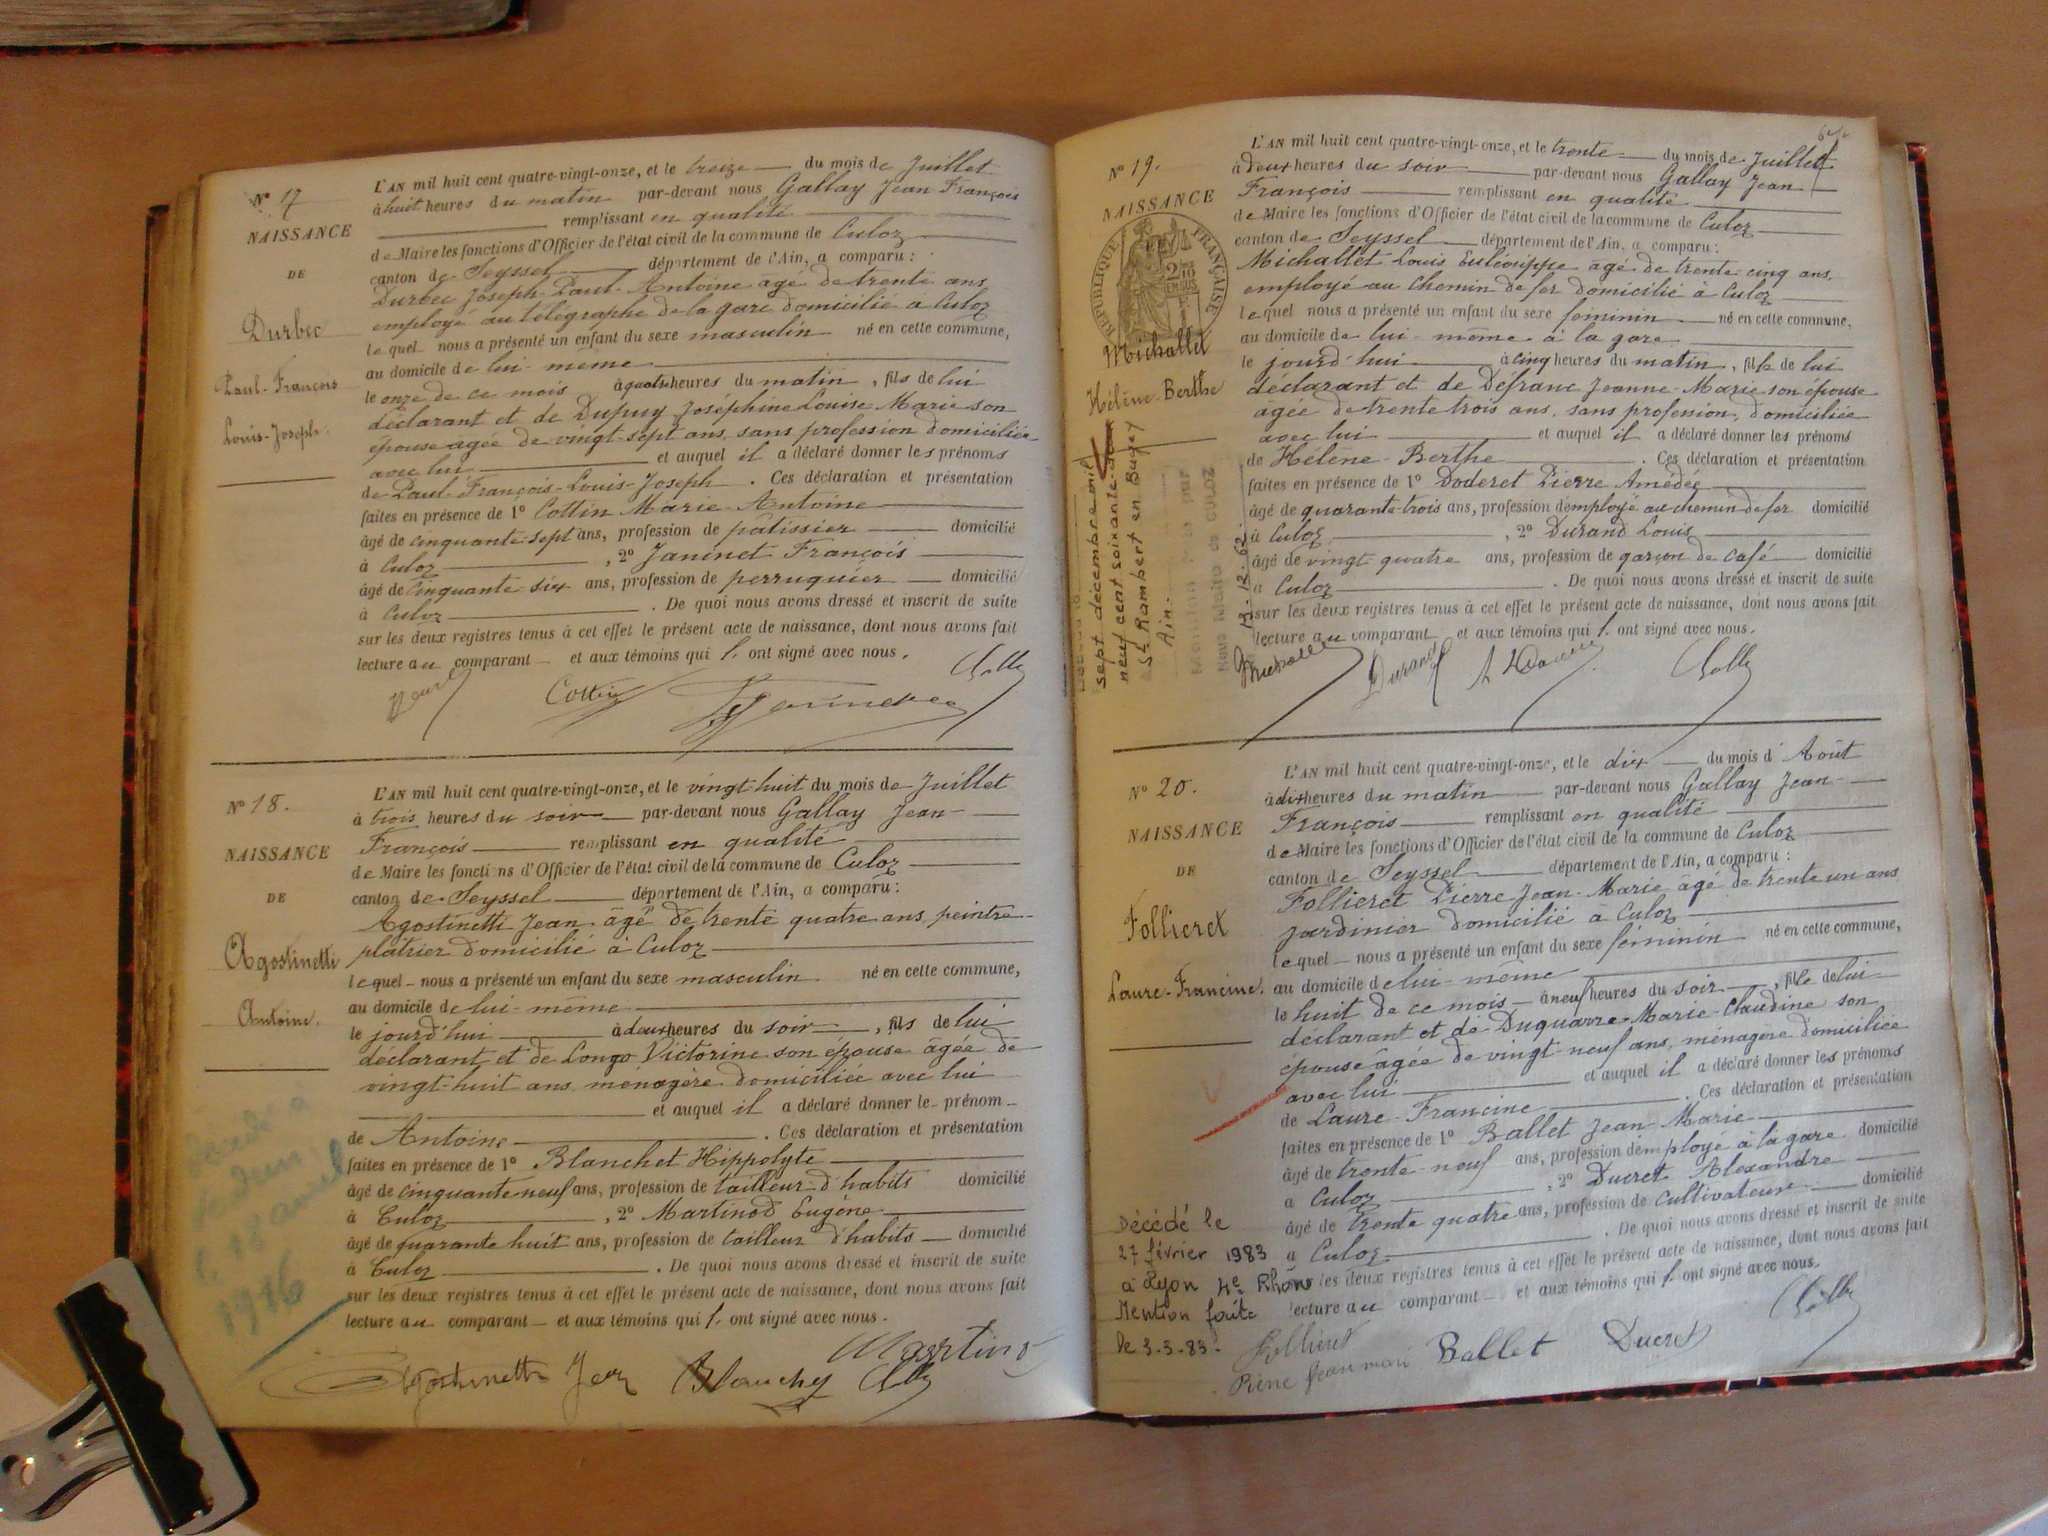 N° 17
NAISSANCE
DE
Durbec
Paul-François
Louis-Joseph.
L'AN mil huit cent quatre-vingt-onze, et le treize du mois de Juillet
à huit heures du matin par-devant nous Gallay Jean François
remplissant en qualité
de Maire les fonctions d'Officier de l'état civil de la commune de Culoz
canton de Seyssel département de l'Ain, a comparu :
Durbec Joseph-Paul-Antoine âgé de trente ans
employé au télégraphe de la gare domicilié à Culoz
lequel nous a présenté un enfant du sexe masculin né en cette commune,
au domicile de lui-même
le onze de ce mois à quatre heures du matin, fils de lui
déclarant et de Dupuy Joséphine Louise Marie son
épouse âgée de vingt-sept ans, sans profession domiciliée
avec lui et auquel il a déclaré donner les prénoms
de Paul-François-Louis-Joseph. Ces déclaration et présentation
faites en présence de 1° Cottin Marie-Antoine
âgé de cinquante-sept ans, profession de pâtissier domicilié
à Culoz, 2° Janinet François
âgé de cinquante-six ans, profession de perruquier domicilié
à Culoz. De quoi nous avons dressé et inscrit de suite
sur les deux registres tenus à cet effet le présent acte de naissance, dont nous avons fait
lecture au comparant et aux témoins qui l' ont signé avec nous.
Cottin
N° 18.
NAISSANCE
DE
Agostinetti
Antoine.
L'AN mil huit cent quatre-vingt-onze, et le vingt-huit du mois de Juillet
à trois heures du soir par-devant nous Gallay Jean
François remplissant en qualité
de Maire les fonctions d'Officier de l'état civil de la commune de Culoz
canton de Seyssel département de l'Ain, a comparu :
Agostinetti Jean âgé de trente quatre ans, peintre
plâtrier domicilié à Culoz
lequel nous a présenté un enfant du sexe masculin né en cette commune,
au domicile de lui-même
le jourd'hui à deux heures du soir, fils de lui
déclarant et de Longo Victorine son épouse âgée de
vingt-huit ans ménagère domiciliée avec lui
et auquel il a déclaré donner le prénom
de Antoine. Ces déclaration et présentation
faites en présence de 1° Blanchet Hippolyte
âgé de cinquante neuf ans, profession de tailleur d'habits domicilié
à Culoz, 2° Martinod Eugène
âgé de quarante huit ans, profession de tailleur d'habits domicilié
à Culoz. De quoi nous avons dressé et inscrit de suite
sur les deux registres tenus à cet effet le présent acte de naissance, dont nous avons fait
lecture au comparant et aux témoins qui l' ont signé avec nous.
1916
Martinod
Agostinetti Jean Blanchet
N° 19.
NAISSANCE
RÉPUBLIQUE FRANÇAISE
Michallet
Hélène-Berthe
sept décembre mil
neuf cent soixante-deux
St Rambert en Bugey
Ain.
13.12.62
L'AN mil huit cent quatre-vingt-onze, et le trente du mois de Juillet
à deux heures du soir par-devant nous Gallay Jean
François remplissant en qualité
de Maire les fonctions d'Officier de l'état civil de la commune de Culoz
canton de Seyssel département de l'Ain, a comparu :
Michallet Louis Euleusippe âgé de trente cinq ans,
employé au Chemin de fer domicilié à Culoz
lequel nous a présenté un enfant du sexe féminin né en cette commune,
au domicile de lui-même à la gare
le jourd'hui à cinq heures du matin, fille de lui
déclarant et de Défranc Jeanne-Marie son épouse
âgée de trente trois ans, sans profession, domiciliée
avec lui et auquel il a déclaré donner les prénoms
de Hélène-Berthe. Ces déclaration et présentation
faites en présence de 1° Doderet Pierre Amédée
âgé de quarante trois ans, profession d'employé au chemin de fer domicilié
à Culoz, 2° Durand Louis
âgé de vingt quatre ans, profession de garçon de café domicilié
à Culoz. De quoi nous avons dressé et inscrit de suite
sur les deux registres tenus à cet effet le présent acte de naissance, dont nous avons fait
lecture au comparant et aux témoins qui l' ont signé avec nous.
Michallet Durand
N° 20.
NAISSANCE
DE
Follieret
Laure-Francine.
L'AN mil huit cent quatre-vingt-onze, et le dix du mois d'Août
à dix heures du matin par-devant nous Gallay Jean
François remplissant en qualité
de Maire les fonctions d'Officier de l'état civil de la commune de Culoz
canton de Seyssel département de l'Ain, a comparu :
Follieret Pierre Jean-Marie âgé de trente un ans
jardinier domicilié à Culoz
lequel nous a présenté un enfant du sexe féminin né en cette commune,
au domicile de lui-même
le huit de ce mois à neuf heures du soir, fille de lui
déclarant et de Duquarre Marie-Claudine son
épouse âgée de vingt-neuf ans, ménagère domiciliée
avec lui et auquel il a déclaré donner les prénoms
de Laure-Francine. Ces déclaration et présentation
faites en présence de 1° Ballet Jean-Marie
âgé de trente-neuf ans, profession d'employé à la gare domicilié
à Culoz, 2° Ducret Alexandre
âgé de trente quatre ans, profession de cultivateur domicilié
à Culoz. De quoi nous avons dressé et inscrit de suite
sur les deux registres tenus à cet effet le présent acte de naissance, dont nous avons fait
lecture au comparant et aux témoins qui l' ont signé avec nous.
Décédé le
27 février 1983
à Lyon 4e Rhône
Mention faite
le 3-3-83.
Follieret
Piérre Jean mari Ballet Ducret